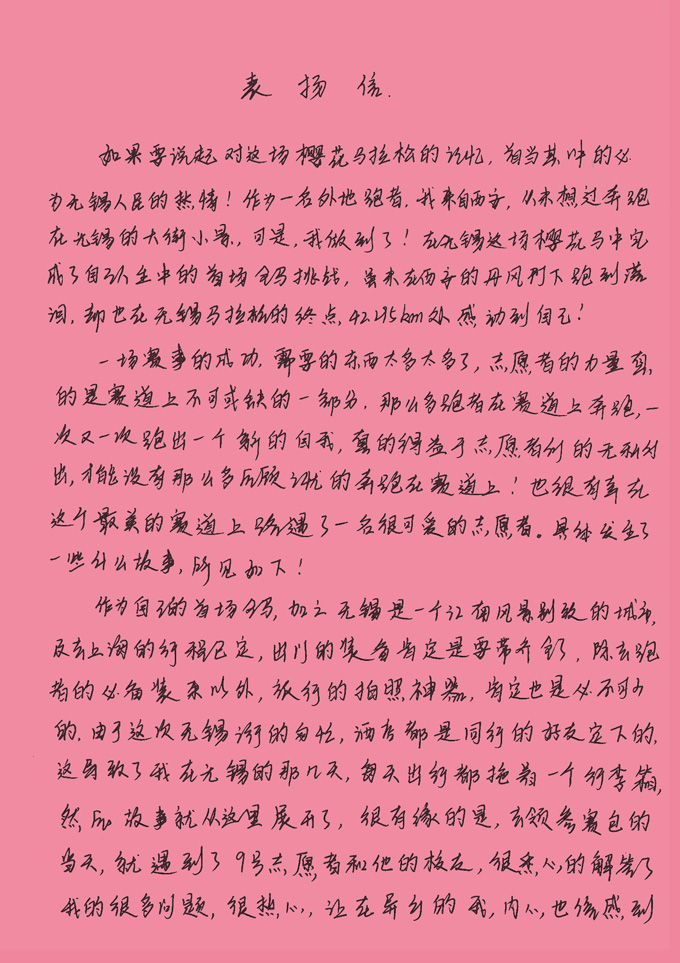 表扬信.
如果要说起对这场樱花马拉松的记忆,首当其冲的必
为无锡人民的热情!作为一名外地跑者,我来自西安,从未想过奔跑
在无锡的大街小景,可是,我做到了!在无锡这场樱花马中完
成了自己人生中的首场全马挑战,虽未在西安的丹凤门下跑到落
泪,却也在无锡马拉松的终点,42.195km处感动到自己!
一场赛事的成功,需要的东西太多太多了,志愿者的力量真
的是赛道上不可或缺的一部分,那么多跑者在赛道上奔跑,一
次又一次跑出一个新的自我,真的得益于志愿者们的无私付
出,才能没有那么多后顾之忧的奔跑在赛道上!也很有幸在
这个最美的赛道上路遇了一名很可爱的志愿者。具体发生了
一些什么故事,所见如下!
作为自己的首场全马,加之无锡是一个江南风景别致的城市,
及去上海的行程已定,出门的装备肯定是要带齐全,除去跑
者的必备装束以外,旅行的拍照神器,肯定也是必不可少
的.由于这次无锡之行的匆忙,酒店都是同行的好友定下的,
这导致了我在无锡的那几天,每天出行都拖着一个行李箱,
然后故事就从这里展开了,很有缘的是,去领参赛包的
当天,就遇到了9号志愿者和他的校友,很悉心的解答了
我的很多问题,很热心,让在异乡的我,内心也倍感到